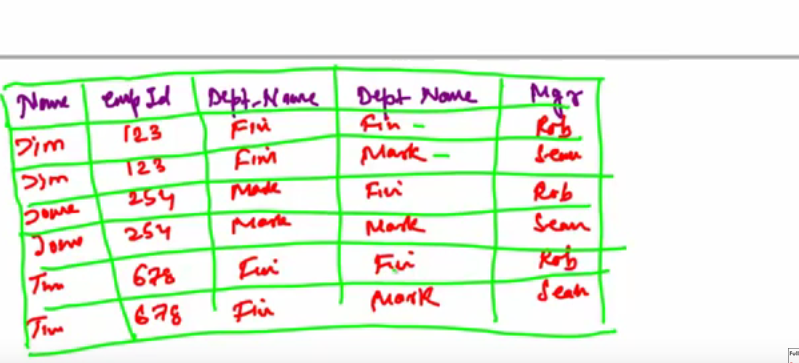 Name Emp Id Dept-Name Dept Name Mgr
Jim 123 Fin Fin - Rob
Jim 123 Fin Mark - Sean
254 Mark Fin Rob
254 Mark Mark Sean
Tim 678 Fin Fin Rob
Tim 678 Fin Mark Sean